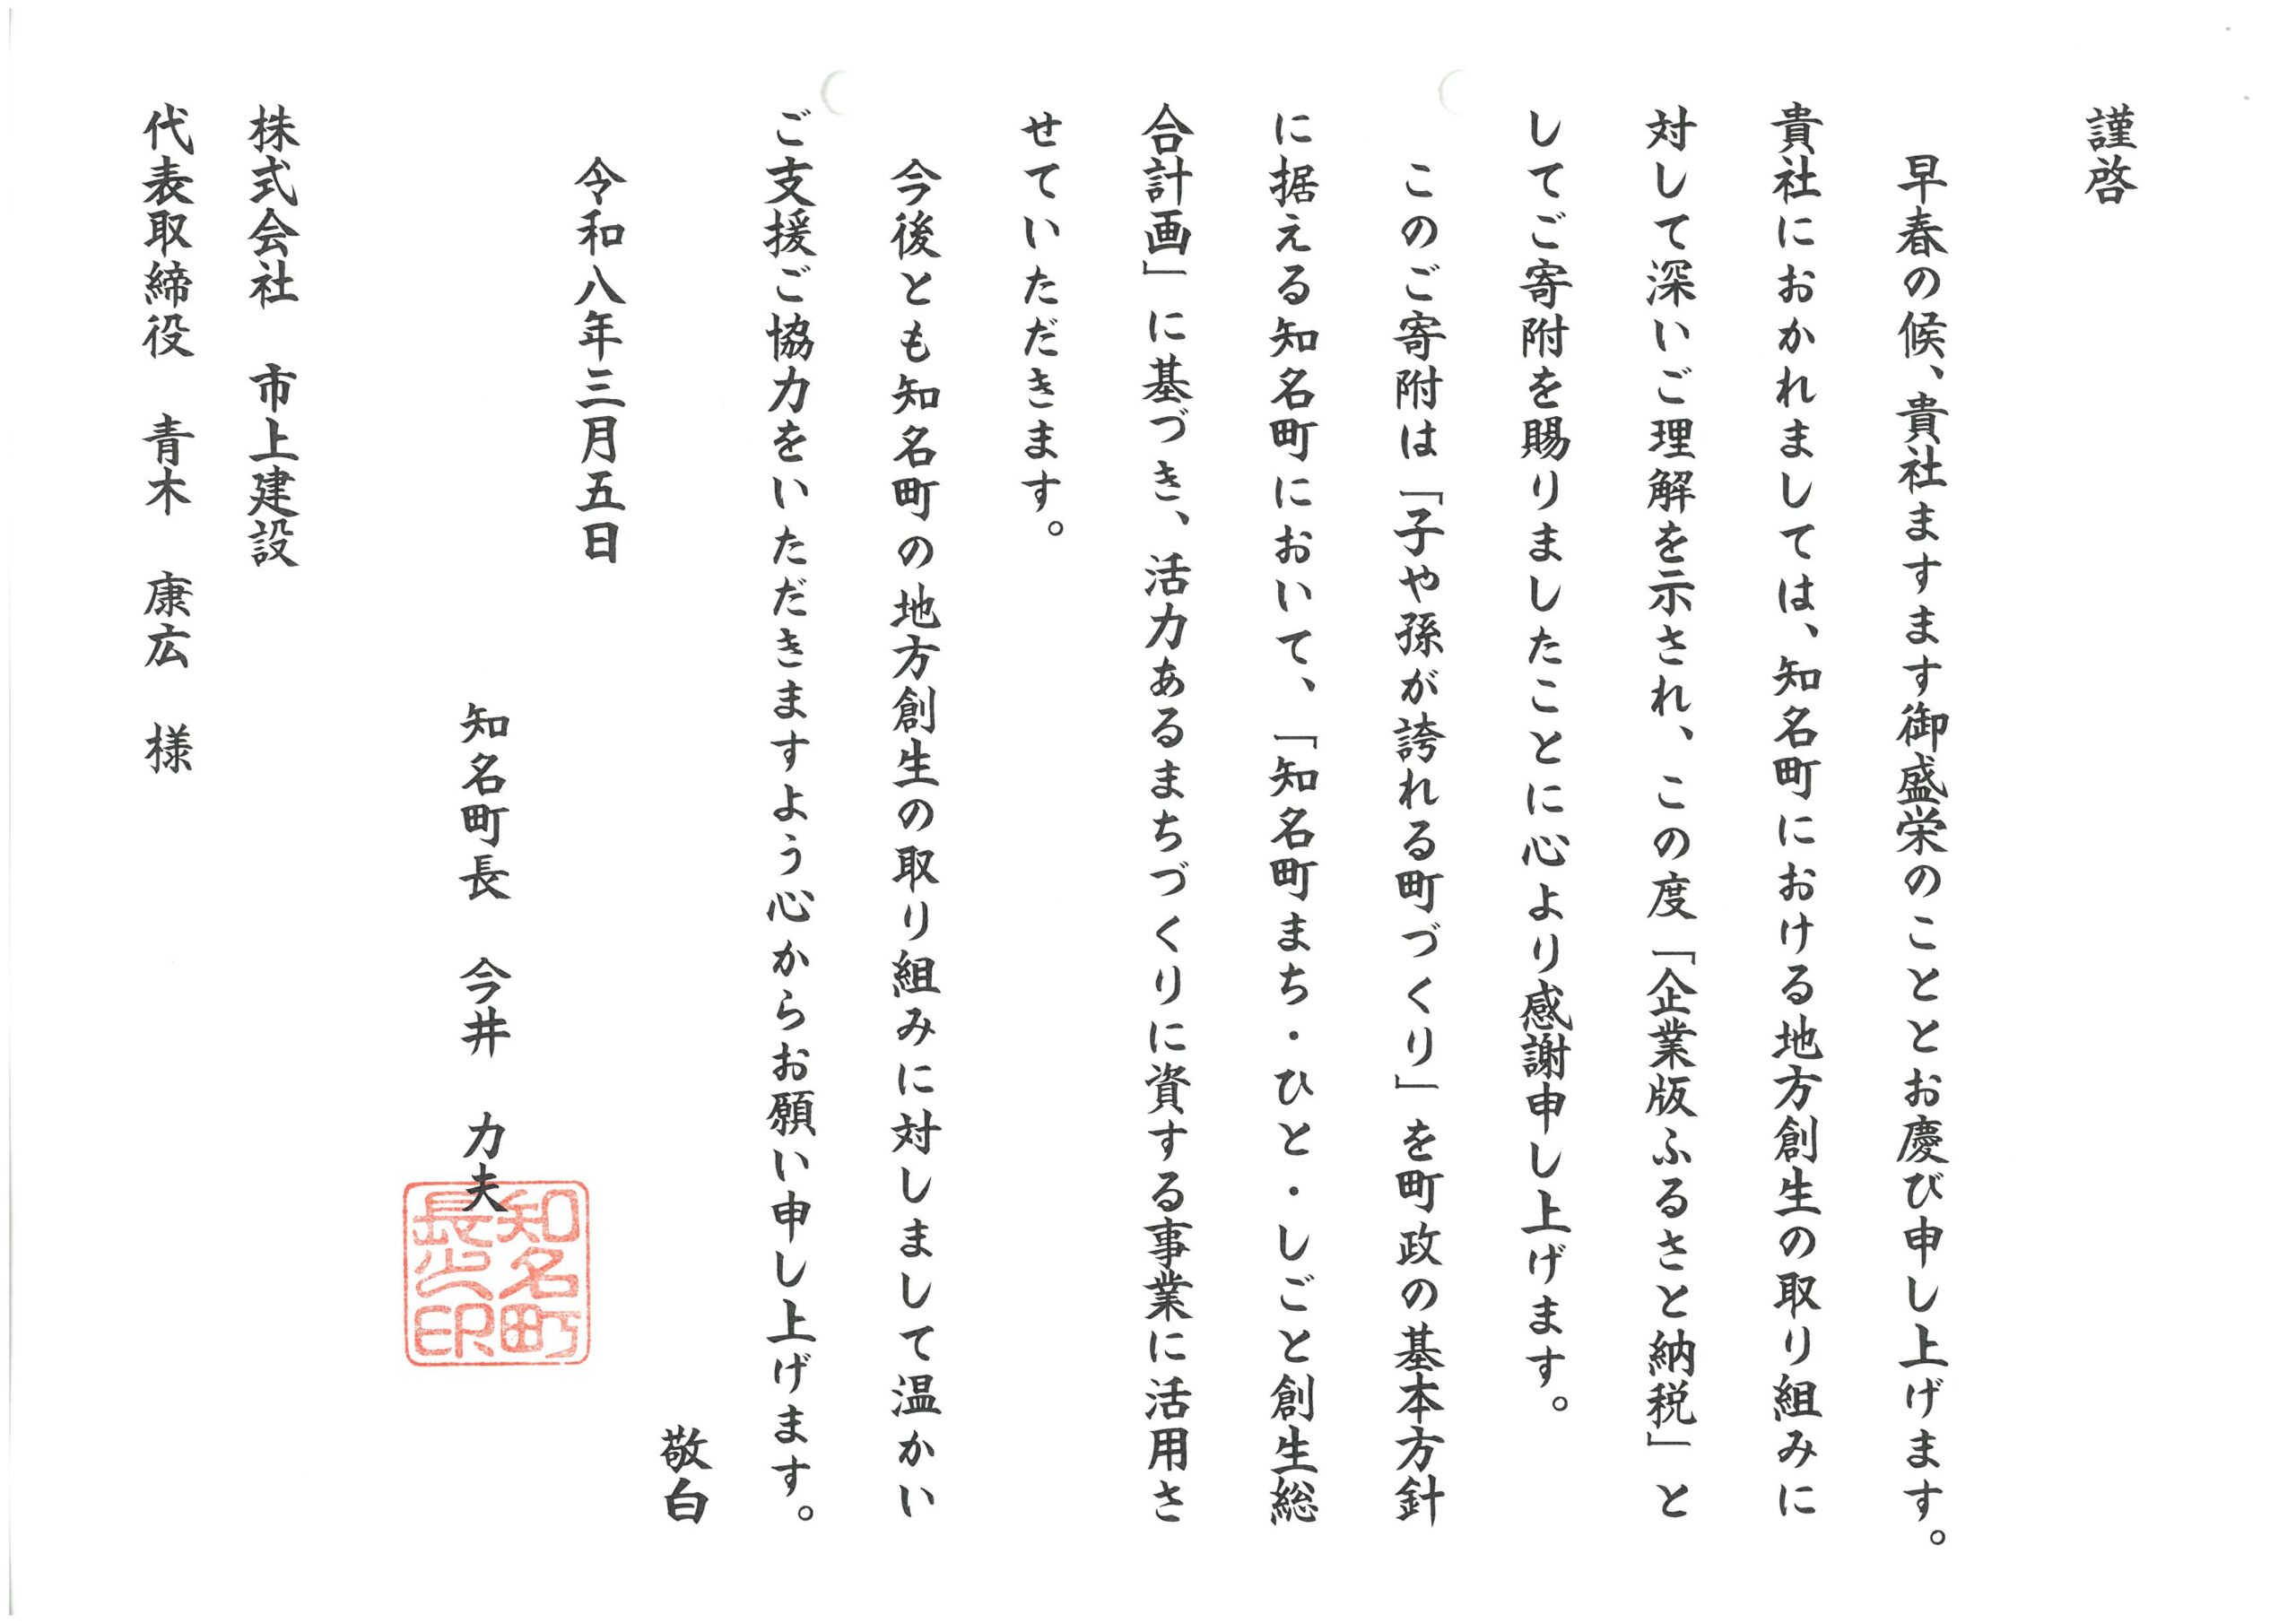 謹啓
早春の候、貴社ますます御盛栄のこととお慶び申し上げます。
貴社におかれましては、知名町における地方創生の取り組みに
対して深いご理解を示され、この度「企業版ふるさと納税」と
してご寄附を賜りましたことに心より感謝申し上げます。
このご寄附は「子や孫が誇れる町づくり」を町政の基本方針
に据える知名町において、「知名町まち・ひと・しごと創生総
合計画」に基づき、活力あるまちづくりに資する事業に活用さ
せていただきます。
今後とも知名町の地方創生の取り組みに対しまして温かい
ご支援ご協力をいただきますよう心からお願い申し上げます。
敬白
令和八年三月五日
知名町長　今井　力夫
知名町
長之印
株式会社　市上建設
代表取締役　青木　康広　様